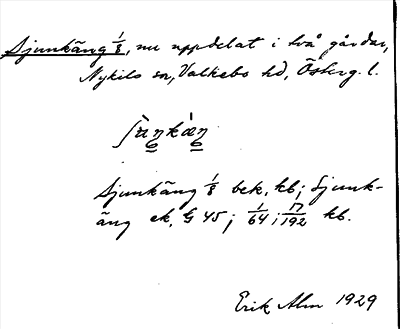 Sjunkäng 1/8, nu uppdelat i två gårdar,
Nykils sn, Valkebo hd, Österg. l.
Sjunkäng 1/8 bek. kb; Sjunk-
äng ek. G 45; 1/64; 17/192 kb.
Erik Alm 1929